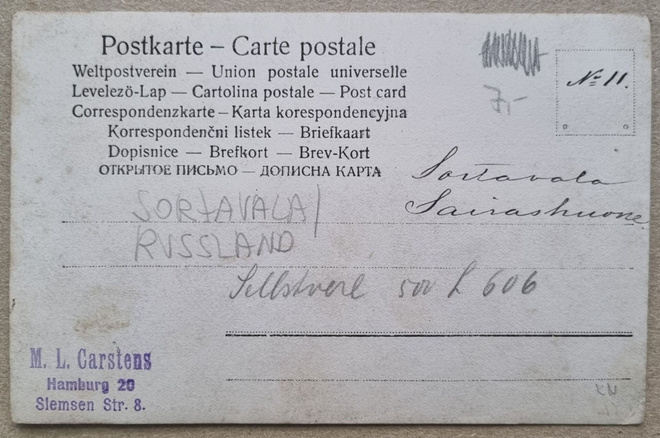 Postkarte – Carte postale
Weltpostverein — Union postale universelle
Levelezö-Lap — Cartolina postale — Post card
Correspondenzkarte – Karta korespondencyjna
Korrespondenční listek — Briefkaart
Dopisnice — Brefkort — Brev-Kort
ОТКРЫТОЕ ПИСЬМО — ДОПИСНА КАРТА
7,-
№ 11.
Sortavala
Sairashuone
SORTAVALA/
RUSSLAND
500 606
M. L. Carstens
Hamburg 20
Siemsen Str. 8.